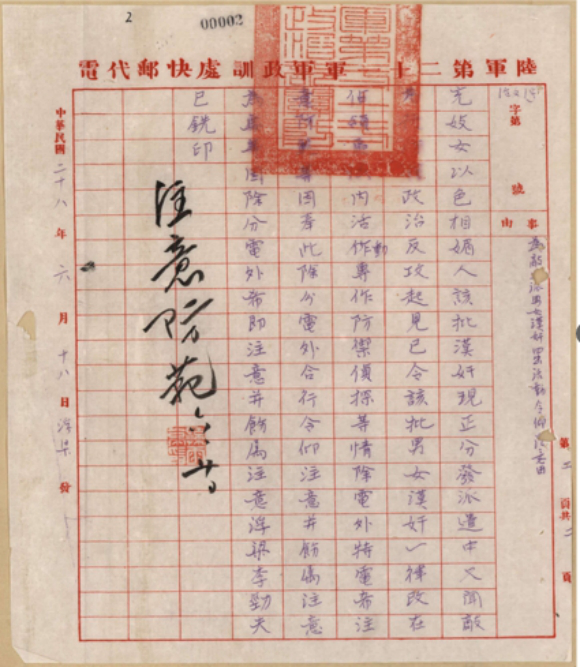 2
00002
陸軍第二十軍軍政訓處快郵代電
字第 號
事由
為敵派男女漢奸四出活動令仰注意由
第二頁共二頁
充妓女以色相媚人該批漢奸現正分發派遣中又聞敵
政治反攻起見已令該批男女漢奸一律改在
佔領內活動作專作防禦偵探等情除電外特電希注
等因奉此除分電外合行令仰注意并飭屬注意
為要因除分電外希即注意并飭屬注意浮梁李勁夫
巳銑印
注意防範
中華民國二十八年六月十八日浮梁發